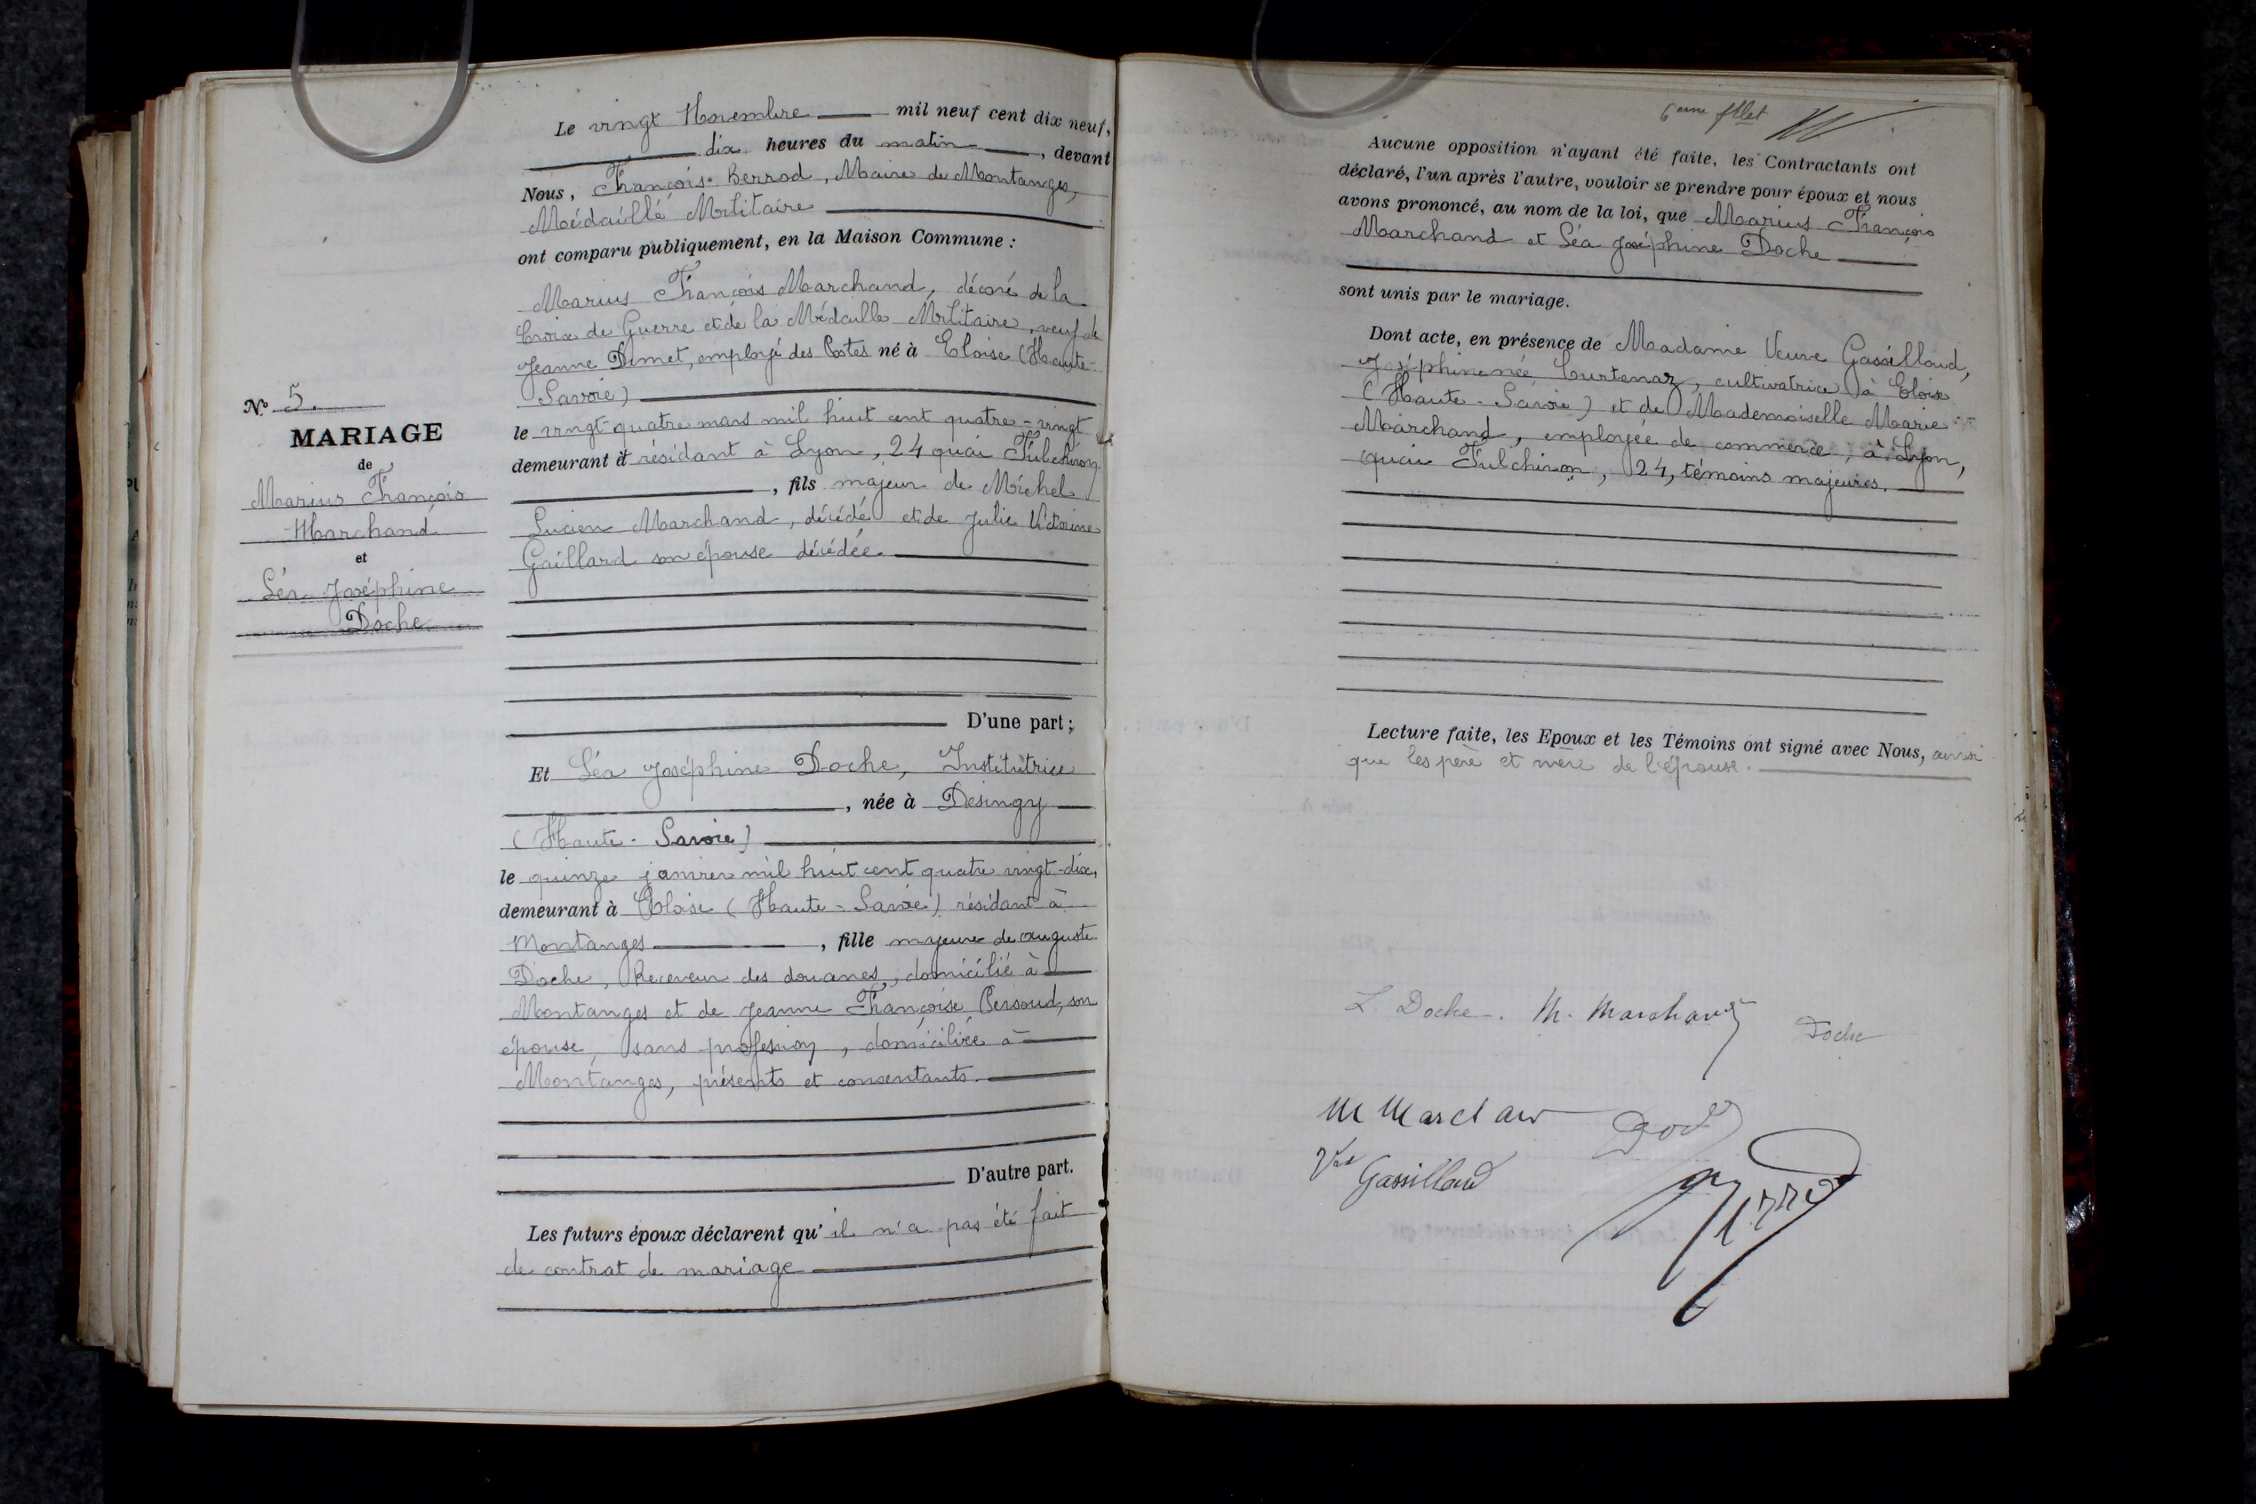 Le vingt Novembre mil neuf cent dix neuf,
dix heures du matin, devant
Nous, François Berrod, Maire de Montanges,
Médaillé Militaire
ont comparu publiquement, en la Maison Commune :
Marius François Marchand, décoré de la
Croix de Guerre et de la Médaille Militaire, veuf de
Jeanne Dimet, employé des Postes né à Eloise (Haute-
Savoie)
le vingt-quatre mars mil huit cent quatre-vingt
demeurant et résidant à Lyon, 24 quai Fulchiron
, fils majeur de Michel
Lucien Marchand, décédé et de Julie Victorine
Gaillard son épouse décédée.
D'une part ;
Et Léa Joséphine Doche, Institutrice
, née à Desingy
(Haute-Savoie)
le quinze janvier mil huit cent quatre vingt-dix,
demeurant à Eloise (Haute-Savoie) résidant à
Montanges, fille majeure de Auguste
Doche, Receveur des douanes, domicilié à
Montanges et de Jeanne Françoise Persoud, son
épouse, sans profession, domiciliée à
Montanges, présents et consentants.
D'autre part.
Les futurs époux déclarent qu'il n'a pas été fait
de contrat de mariage
N° 5.
MARIAGE
de
Marius François
Marchand
et
Léa Joséphine
Doche
6eme fllet
Aucune opposition n'ayant été faite, les Contractants ont
déclaré, l'un après l'autre, vouloir se prendre pour époux et nous
avons prononcé, au nom de la loi, que Marius François
Marchand et Léa Joséphine Doche
sont unis par le mariage.
Dont acte, en présence de Madame Veuve Gassilloud,
Joséphine née Curtenaz, cultivatrice à Eloise
(Haute-Savoie) et de Mademoiselle Marie
Marchand, employée de commerce, à Lyon,
quai Fulchiron, 24, témoins majeures.
Lecture faite, les Epoux et les Témoins ont signé avec Nous, ainsi
que les père et mère de l'épouse.
L. Doche. M. Marchand Doche
M Marchand
Vve Gassilloud